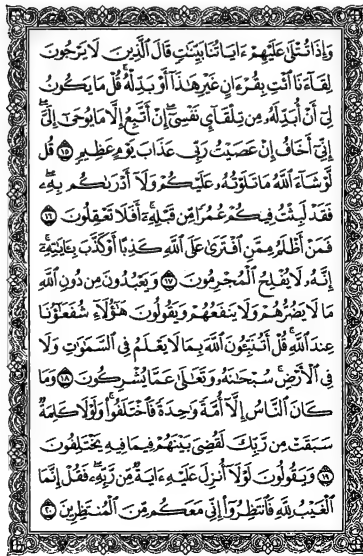 وَإِذَا تُتْلَىٰ عَلَيْهِمْ ءَايَاتُنَا بَيِّنَٰتٍ قَالَ الَّذِينَ لَا يَرْجُونَ
لِقَآءَنَا ٱئْتِ بِقُرْءَانٍ غَيْرِ هَٰذَآ أَوْ بَدِّلْهُ قُلْ مَا يَكُونُ
لِىٓ أَنْ أُبَدِّلَهُۥ مِن تِلْقَآىِٕ نَفْسِىٓ إِنْ أَتَّبِعُ إِلَّا مَا يُوحَىٰٓ إِلَىَّ
إِنِّىٓ أَخَافُ إِنْ عَصَيْتُ رَبِّى عَذَابَ يَوْمٍ عَظِيمٍ ١٥ قُل
لَّوْ شَآءَ ٱللَّهُ مَا تَلَوْتُهُۥ عَلَيْكُمْ وَلَآ أَدْرَىٰكُم بِهِۦ
فَقَدْ لَبِثْتُ فِيكُمْ عُمُرًا مِّن قَبْلِهِۦٓ أَفَلَا تَعْقِلُونَ ١٦
فَمَنْ أَظْلَمُ مِمَّنِ ٱفْتَرَىٰ عَلَى ٱللَّهِ كَذِبًا أَوْ كَذَّبَ بِـَٔايَٰتِهِۦٓ
إِنَّهُۥ لَا يُفْلِحُ ٱلْمُجْرِمُونَ ١٧ وَيَعْبُدُونَ مِن دُونِ ٱللَّهِ
مَا لَا يَضُرُّهُمْ وَلَا يَنفَعُهُمْ وَيَقُولُونَ هَٰٓؤُلَآءِ شُفَعَٰٓؤُنَا
عِندَ ٱللَّهِ قُلْ أَتُنَبِّـُٔونَ ٱللَّهَ بِمَا لَا يَعْلَمُ فِى ٱلسَّمَٰوَٰتِ وَلَا
فِى ٱلْأَرْضِ سُبْحَٰنَهُۥ وَتَعَٰلَىٰ عَمَّا يُشْرِكُونَ ١٨ وَمَا
كَانَ ٱلنَّاسُ إِلَّآ أُمَّةً وَٰحِدَةً فَٱخْتَلَفُوا۟ وَلَوْلَا كَلِمَةٌ
سَبَقَتْ مِن رَّبِّكَ لَقُضِىَ بَيْنَهُمْ فِيمَا فِيهِ يَخْتَلِفُونَ
١٩ وَيَقُولُونَ لَوْلَآ أُنزِلَ عَلَيْهِ ءَايَةٌ مِّن رَّبِّهِۦ فَقُلْ إِنَّمَا
ٱلْغَيْبُ لِلَّهِ فَٱنتَظِرُوٓا۟ إِنِّى مَعَكُم مِّنَ ٱلْمُنتَظِرِينَ ٢٠